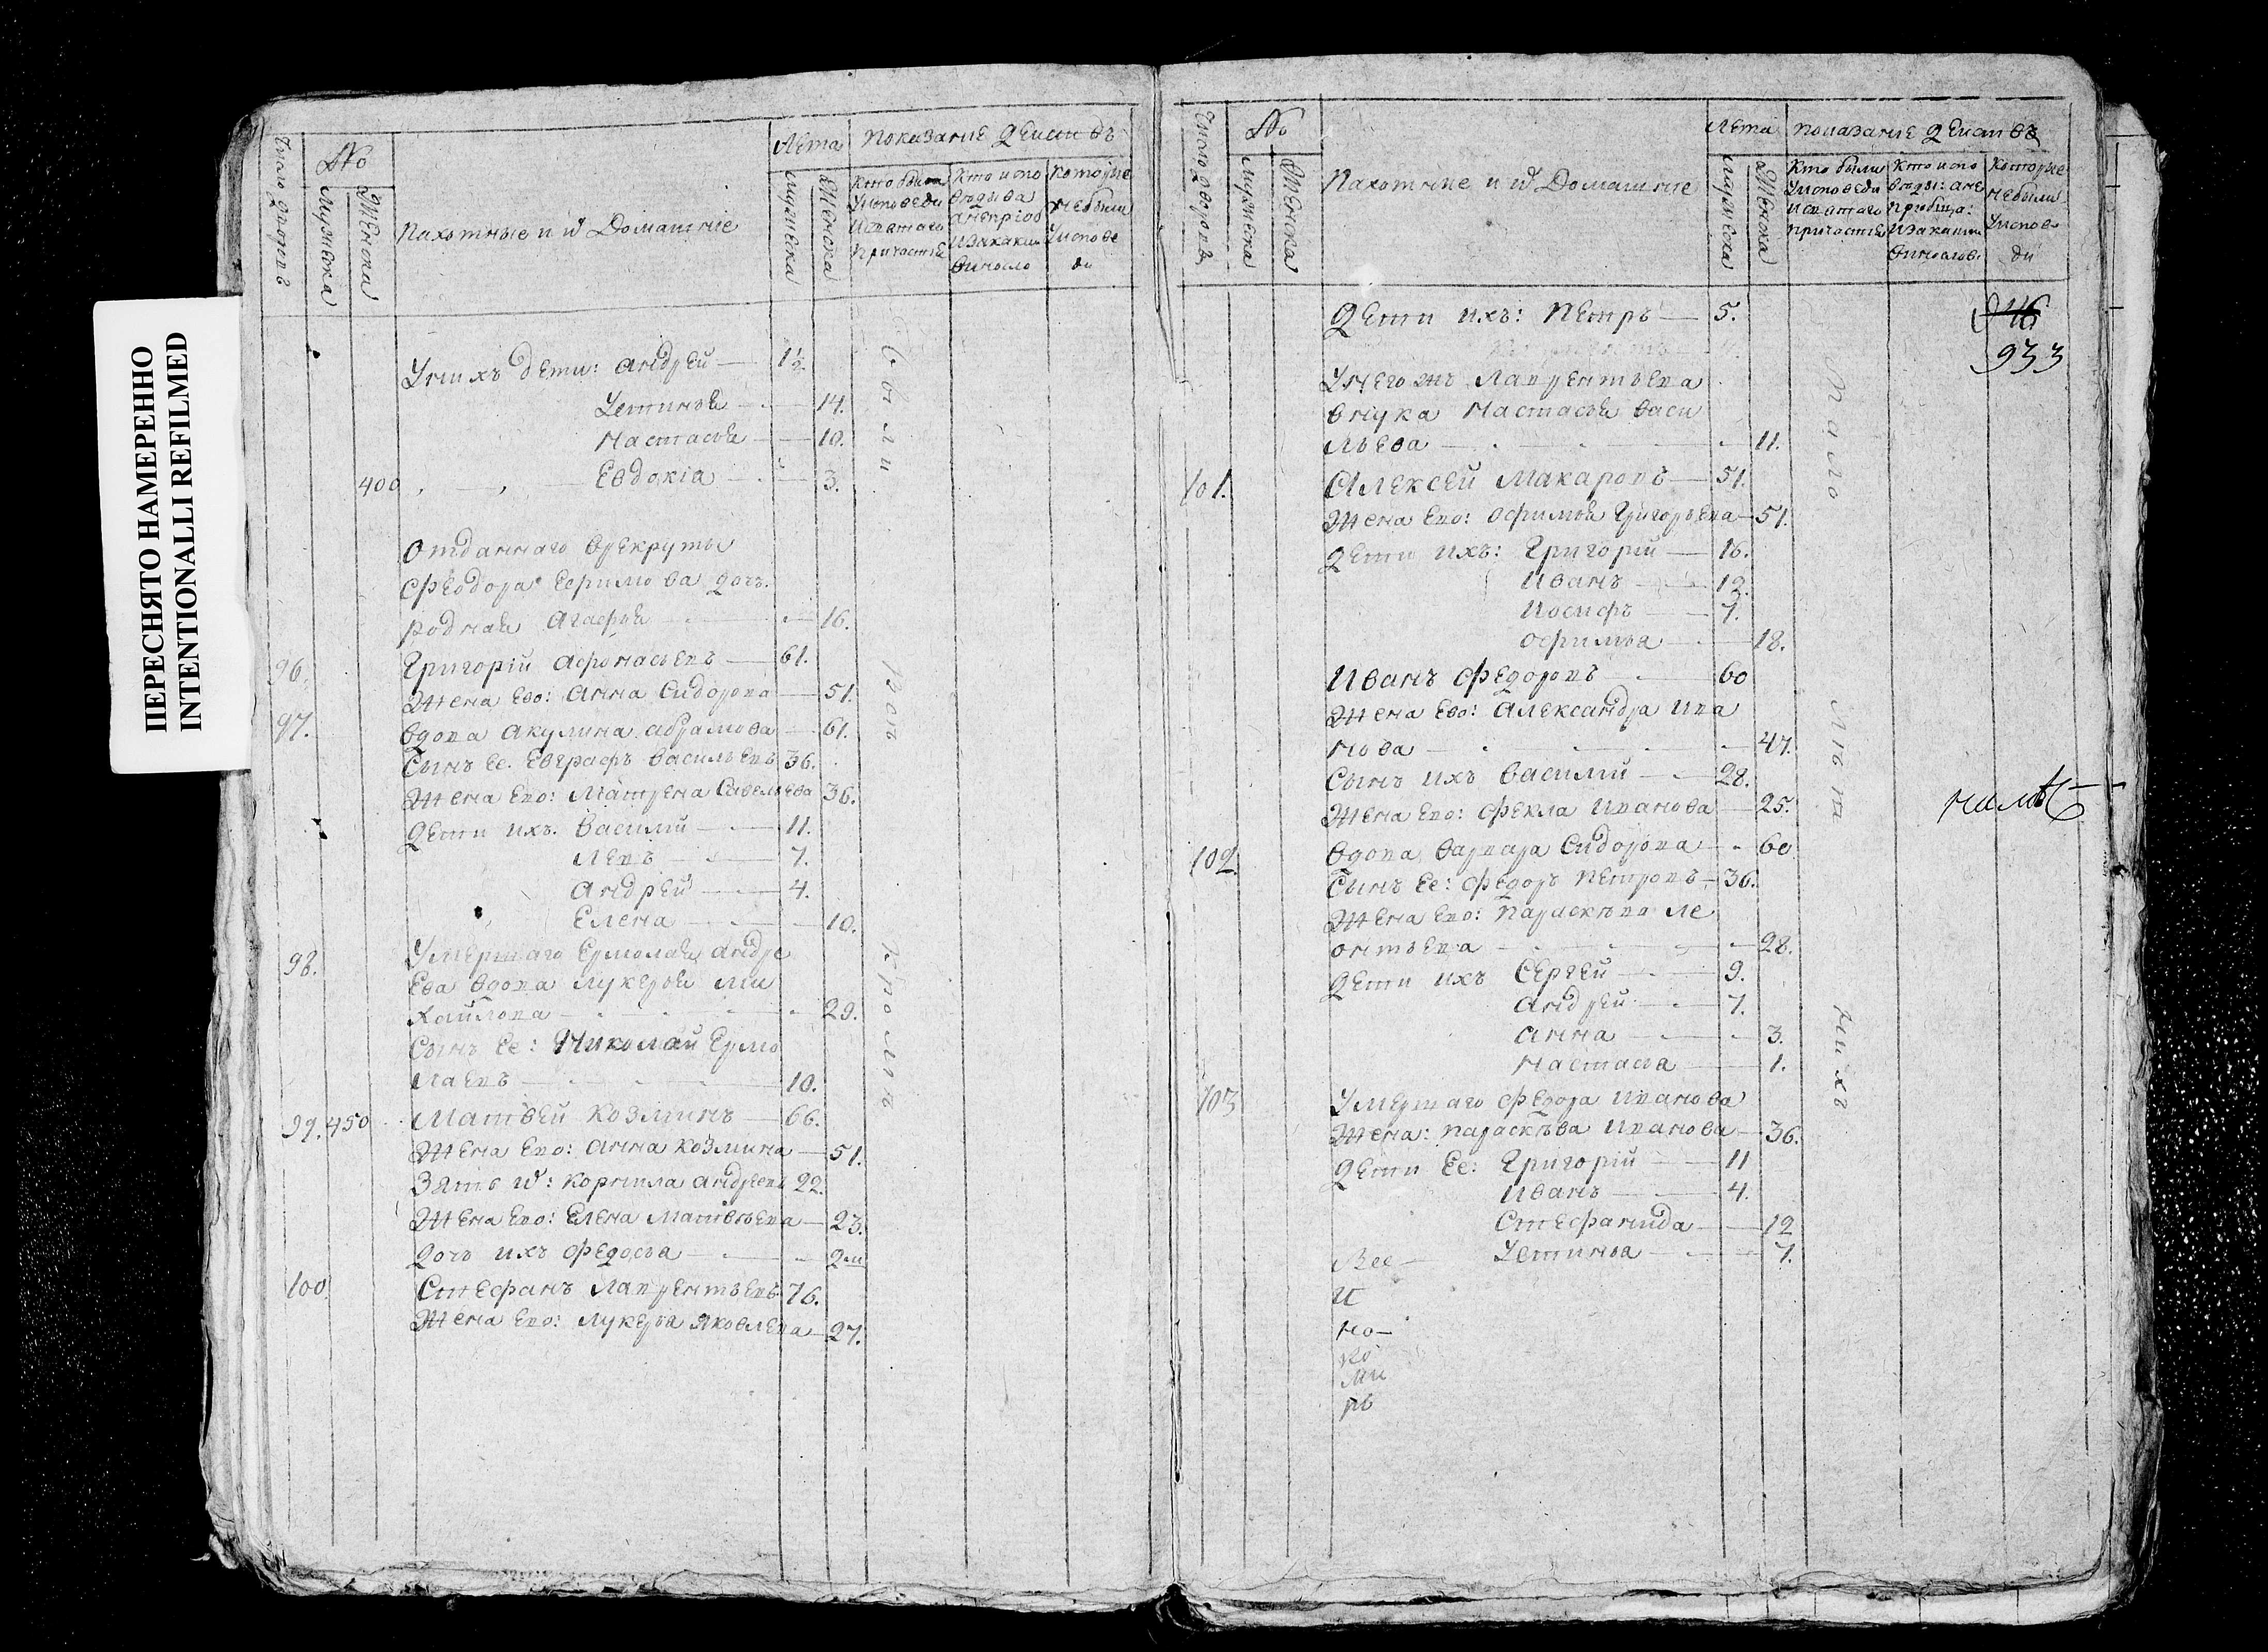 ПЕРЕСНЯТО НАМЕРЕННО
INTENTIONALLI REFILMED
Число дворовъ
№
Мужеска
Женска
Пахотные и ѿ Домашние
Лета
Мужеска
Женска
показание Действъ
Кто были
Уисповеди
Исвятаго
Причастия
Кто испо
Которые
небыли
Уиспове
ди
Унихъ дети: Андрей — 1½
Устинья — 14.
Настасья — 10.
400 Евдокіа — 3.
Отданнаго врекруты
Феодора Ефимова дочь
родная Агафья — 16.
96. Григорій Афонасьевъ — 61.
Жена Ево: Анна Сидорова — 51.
97. вдова Акулина Абрамова — 61.
Сынъ Ее. Евграфъ Васильевъ 36.
Жена Ево: Матрена Савельева 36.
Дети ихъ. Василий — 11.
Левъ — 7.
Андрей — 4.
Елена — 10.
98. Умершаго Ермолая Андре
Ева вдова Лукерья Ми
хайлова — 29.
Сынъ Ее: Николай Ермо
лаевъ — 10.
99. 450 Матвей Козминъ — 66.
Жена Ево: Анна Козмина — 51.
Зять ѿ: Корнила Андреевъ 22.
Жена Ево: Елена Матвеъева — 23.
Дочь ихъ Федосья — 2
100. Стефанъ Лаврентьевъ 76.
Жена Ево: Лукерья Яковлева — 27.
были
кромѣ
Число дворовъ
№
Мужеска
Женска
Пахотные и ѿ Домашние
Лета
Мужеска
Женска
показание Действъ
Кто были
Уисповеди
Исвятаго
Причастия
Кто испо
Которые
небыли
Уиспове
ди
Дети ихъ: Петръ — 5.
946
933
Унегожъ Лаврентьева
внука Настасья Васи
льева — 11.
101. Алексей Макаровъ — 51.
Жена Ево: Офимья Григорьева — 51.
Дети ихъ: Григорій — 16.
Иванъ — 12.
Иосифъ — 7.
Офимья — 18.
Иванъ Федоровъ — 60
Жена Ево: Александра Ива
нова — 47.
Сынъ ихъ Василий — 28.
Жена Ево: Фекла Иванова — 25.
102. вдова Варвара Сидорова — 60
Сынъ Ее: Федоръ Петровъ — 36.
Жена Ево: Параскѣва Ле
онтьева — 28.
Дети ихъ Сергей — 9.
Андрей — 7.
Анна — 3.
Настасья — 1.
103 Умершаго Федора Иванова
Жена: Параскѣва Иванова — 36.
Дети Ее: Григорій — 11
Иванъ — 4.
Стефанида — 12
Устинья — 7.
Мало
лѣт
нихъ
Все —
И
но —
ко
ми
ръ